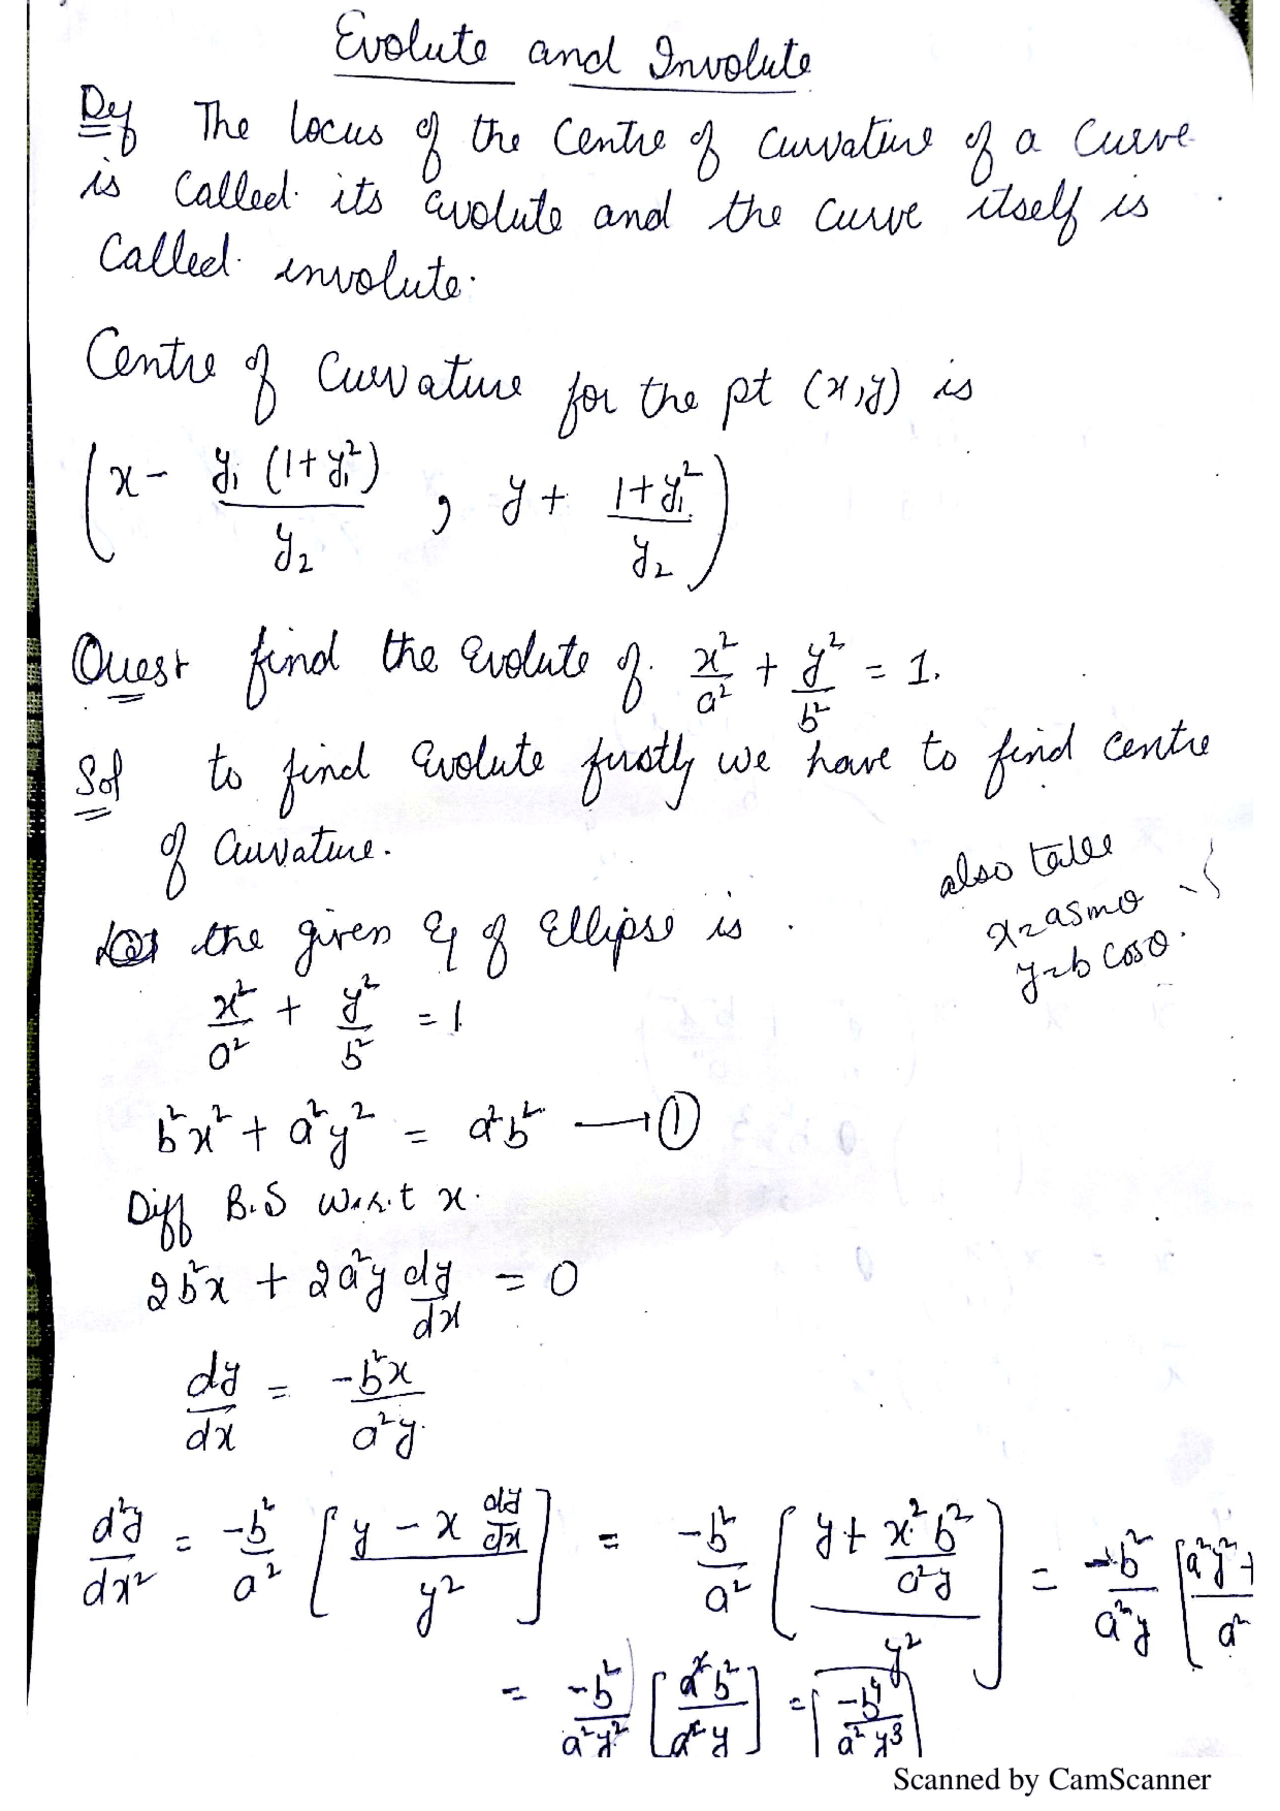 Evolute and Involute
Def The locus of the Centre of Curvature of a Curve
is Called its evolute and the curve itself is
Called involute.
Centre of Curvature for the pt (x,y) is
(x - y₁(1+y₁²)/y₂ , y + (1+y₁²)/y₂)
Quest find the Evolute of x²/a² + y²/b² = 1.
Sol to find Evolute firstly we have to find centre
of Curvature.
also take
x = a sinθ
y = b cosθ.
the given Eq of Ellipse is
x²/a² + y²/b² = 1
b²x² + a²y² = a²b² → ①
Diff B.S w.r.t x.
2b²x + 2a²y dy/dx = 0
dy/dx = -b²x/a²y
d²y/dx² = -b²/a² [(y - x dy/dx)/y²] = -b²/a² [(y + x²b²/a²y)/y²] = -b²/a²y [a²y²+/a²
= -b²/a²y² [a²b²/a²y] = -b⁴/a²y³
Scanned by CamScanner